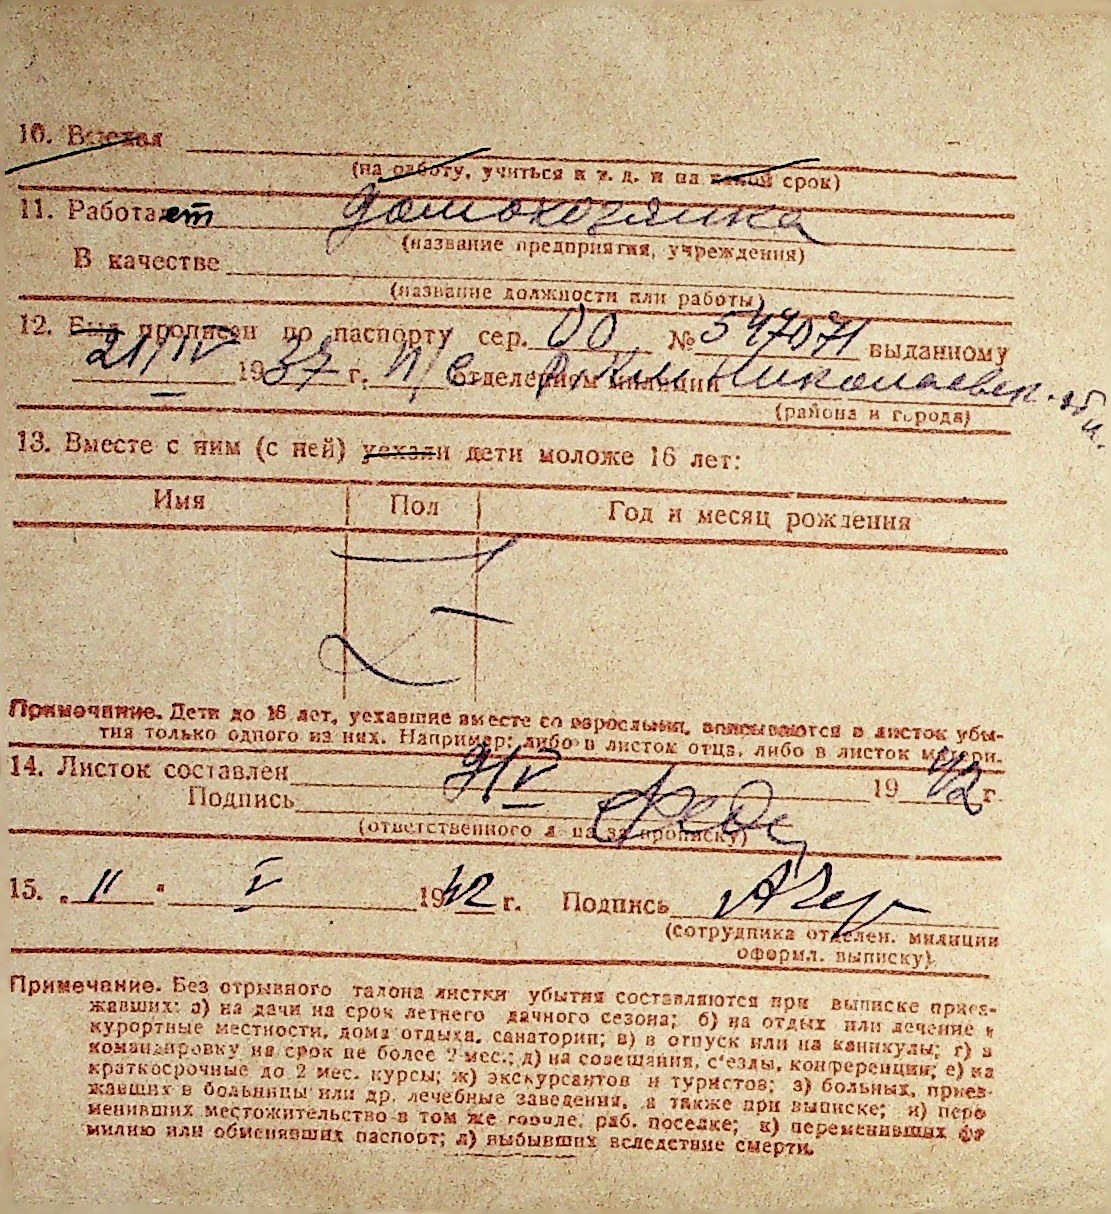 10. Выехал
(на работу, учиться и т. д. и на какой срок)
11. Работает домохозяйка
(название предприятия, учреждения)
В качестве
(название должности или работы)
12. Был прописан по паспорту сер. 00 № 547071 выданному
21/IV 1937 г. отделением милиции Николаевск.
(района и города)
13. Вместе с ним (с ней) уехали дети моложе 16 лет:
Имя Пол Год и месяц рождения
Примечание. Дети до 16 лет, уехавшие вместе со взрослыми, вписываются в листок убы-
тия только одного из них. Например: либо в листок отца, либо в листок матери.
14. Листок составлен 9/V 1942 г.
Подпись
(ответственного лица за прописку)
15. „11" V 1942 г. Подпись
(сотрудника отделен. милиции
оформл. выписку)
Примечание. Без отрывного талона листки убытия составляются при выписке приез-
жавших: а) на дачи на срок летнего дачного сезона; б) на отдых или лечение в
курортные местности, дома отдыха, санатории; в) в отпуск или на каникулы; г) в
командировку на срок не более 2 мес.; д) на совещания, с'езды, конференции; е) на
краткосрочные до 2 мес. курсы; ж) экскурсантов и туристов; з) больных, приез-
жавших в больницы или др. лечебные заведения, а также при выписке; и) пере
менивших местожительство в том же городе, раб. поселке; к) переменивших фа
милию или обменявших паспорт; л) выбывших вследствие смерти.